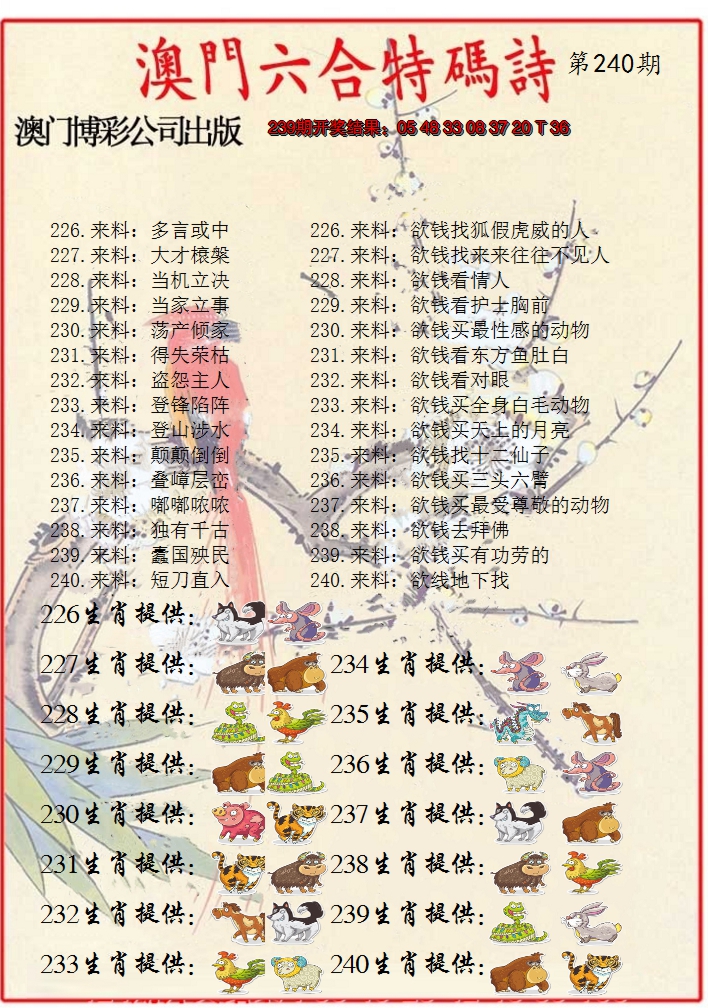 澳門六合特碼詩 第240期
澳门博彩公司出版 239期开奖结果：05 48 33 08 37 20 T 36
226.来料：多言或中 226.来料：欲钱找狐假虎威的人
227.来料：大才榱槃 227.来料：欲钱找来来往往不见人
228.来料：当机立决 228.来料：欲钱看情人
229.来料：当家立事 229.来料：欲钱看护士胸前
230.来料：荡产倾家 230.来料：欲钱买最性感的动物
231.来料：得失荣枯 231.来料：欲钱看东方鱼肚白
232.来料：盗怨主人 232.来料：欲钱看对眼
233.来料：登锋陷阵 233.来料：欲钱买全身白毛动物
234.来料：登山涉水 234.来料：欲钱买天上的月亮
235.来料：颠颠倒倒 235.来料：欲钱找十二仙子
236.来料：叠嶂层峦 236.来料：欲钱买三头六臂
237.来料：嘟嘟哝哝 237.来料：欲钱买最受尊敬的动物
238.来料：独有千古 238.来料：欲钱去拜佛
239.来料：蠹国殃民 239.来料：欲钱买有功劳的
240.来料：短刀直入 240.来料：欲线地下找
226生肖提供：
227生肖提供： 234生肖提供：
228生肖提供： 235生肖提供：
229生肖提供： 236生肖提供：
230生肖提供： 237生肖提供：
231生肖提供： 238生肖提供：
232生肖提供： 239生肖提供：
233生肖提供： 240生肖提供：